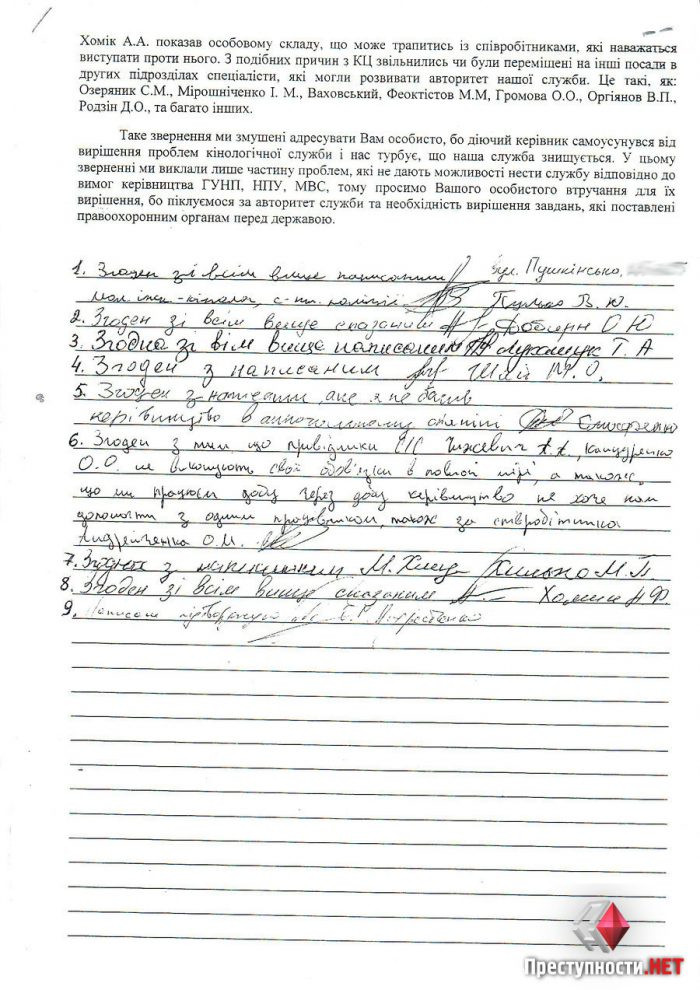 Хомік А.А. показав особовому складу, що може трапитись із співробітниками, які наважаться
виступати проти нього. З подібних причин з КЦ звільнились чи були переміщені на інші посади в
других підрозділах спеціалісти, які могли розвивати авторитет нашої служби. Це такі, як:
Озеряник С.М., Мірошніченко І. М., Ваховський, Феоктістов М.М, Громова О.О., Оргіянов В.П.,
Родзін Д.О., та багато інших.
Таке звернення ми змушені адресувати Вам особисто, бо діючий керівник самоусунувся від
вирішення проблем кінологічної служби і нас турбує, що наша служба знищується. У цьому
зверненні ми виклали лише частину проблем, які не дають можливості нести службу відповідно до
вимог керівництва ГУНП, НПУ, МВС, тому просимо Вашого особистого втручання для їх
вирішення, бо піклуємося за авторитет служби та необхідність вирішення завдань, які поставлені
правоохоронним органам перед державою.
1. Згоден зі всім вище написаним вул. Пушкінська,
В. Ю.
2. Згоден зі всім вище сказаним О Ю
3. Згодна зі вім вище написаним Т. А
4. Згоден з написаним М. О.
5. Згоден з написаним, але я не бачив
керівництво в
6. Згоден з тим що привідники СІС Чижевич А.А, Канцуренко
О.О. не виконують свої обов'язки в повной мірі, а також,
що ми працюєм добу через добу керівництво не хоче нам
допомогти з одним працівником, також за співробітника
Андрейченка О.М.
7. Згодна з написаним М. Хилько М.П.
8. Згоден зі всім вище сказаним Хомин Н Ф.
9. Написане підтверджую
Преступности.НЕТ